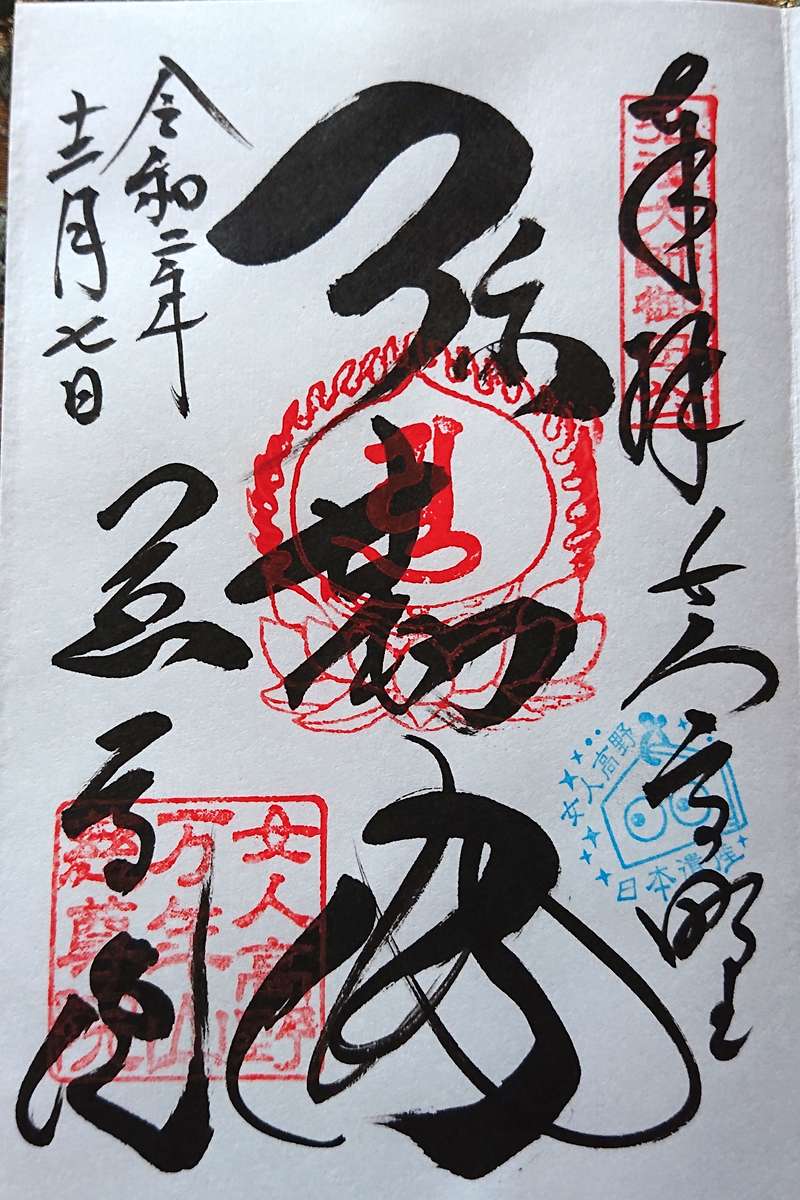 奉拝 女人高野
弘法大師御母公
弥勒佛
令和二年
十二月七日
慈尊院
女人高野
万年山
慈尊院
女人高野
日本遺産